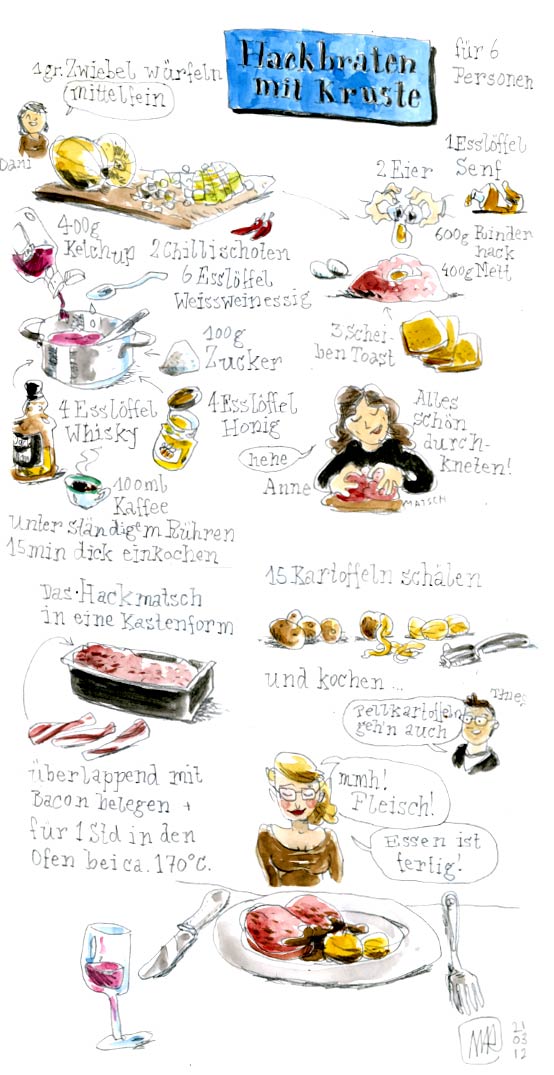 Hackbraten
mit Kruste
für 6
Personen
1 gr. Zwiebel würfeln
mittelfein
Dani
1 Esslöffel
Senf
2 Eier
600g Rinder
hack
400g Mett
400g
Ketchup
2 Chillischoten
6 Esslöffel
Weissweinessig
100g
Zucker
3 Schei-
ben Toast
4 Esslöffel
Whisky
4 Esslöffel
Honig
Alles
schön
durch-
kneten!
hehe
Anne
MATSCH
100ml
Kaffee
Unter ständigem Rühren
15min dick einkochen
Das Hackmatsch
in eine Kastenform
15 Kartoffeln schälen
und kochen ...
Thies
Pellkartoffeln
geh'n auch
überlappend mit
Bacon belegen +
für 1 Std in den
Ofen bei ca. 170°C.
mmh!
Fleisch!
Essen ist
fertig!
21
03
12